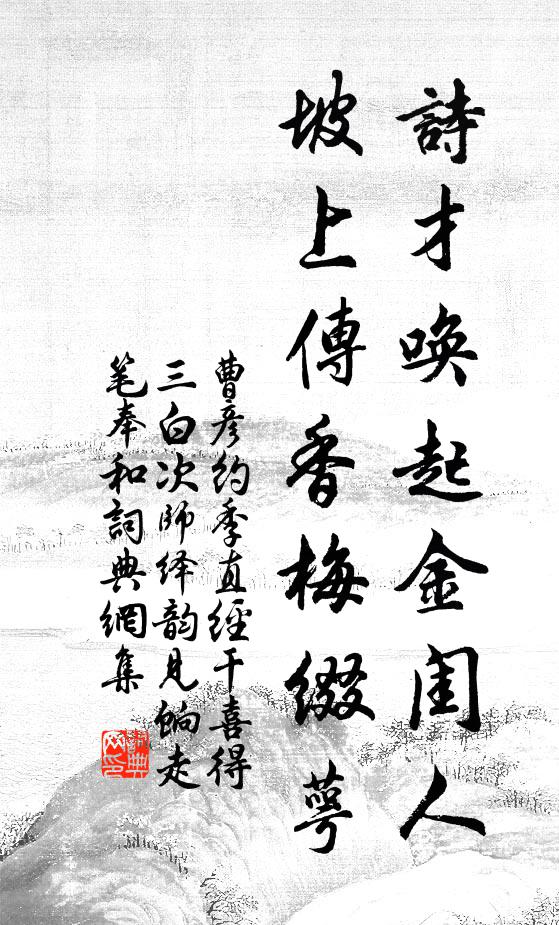 詩才喚起金閨人
坡上傳香梅綴萼
曹彦約季直經干喜得
三白次師绎韵見餉走
笔奉和詞典網集
詞典
网印